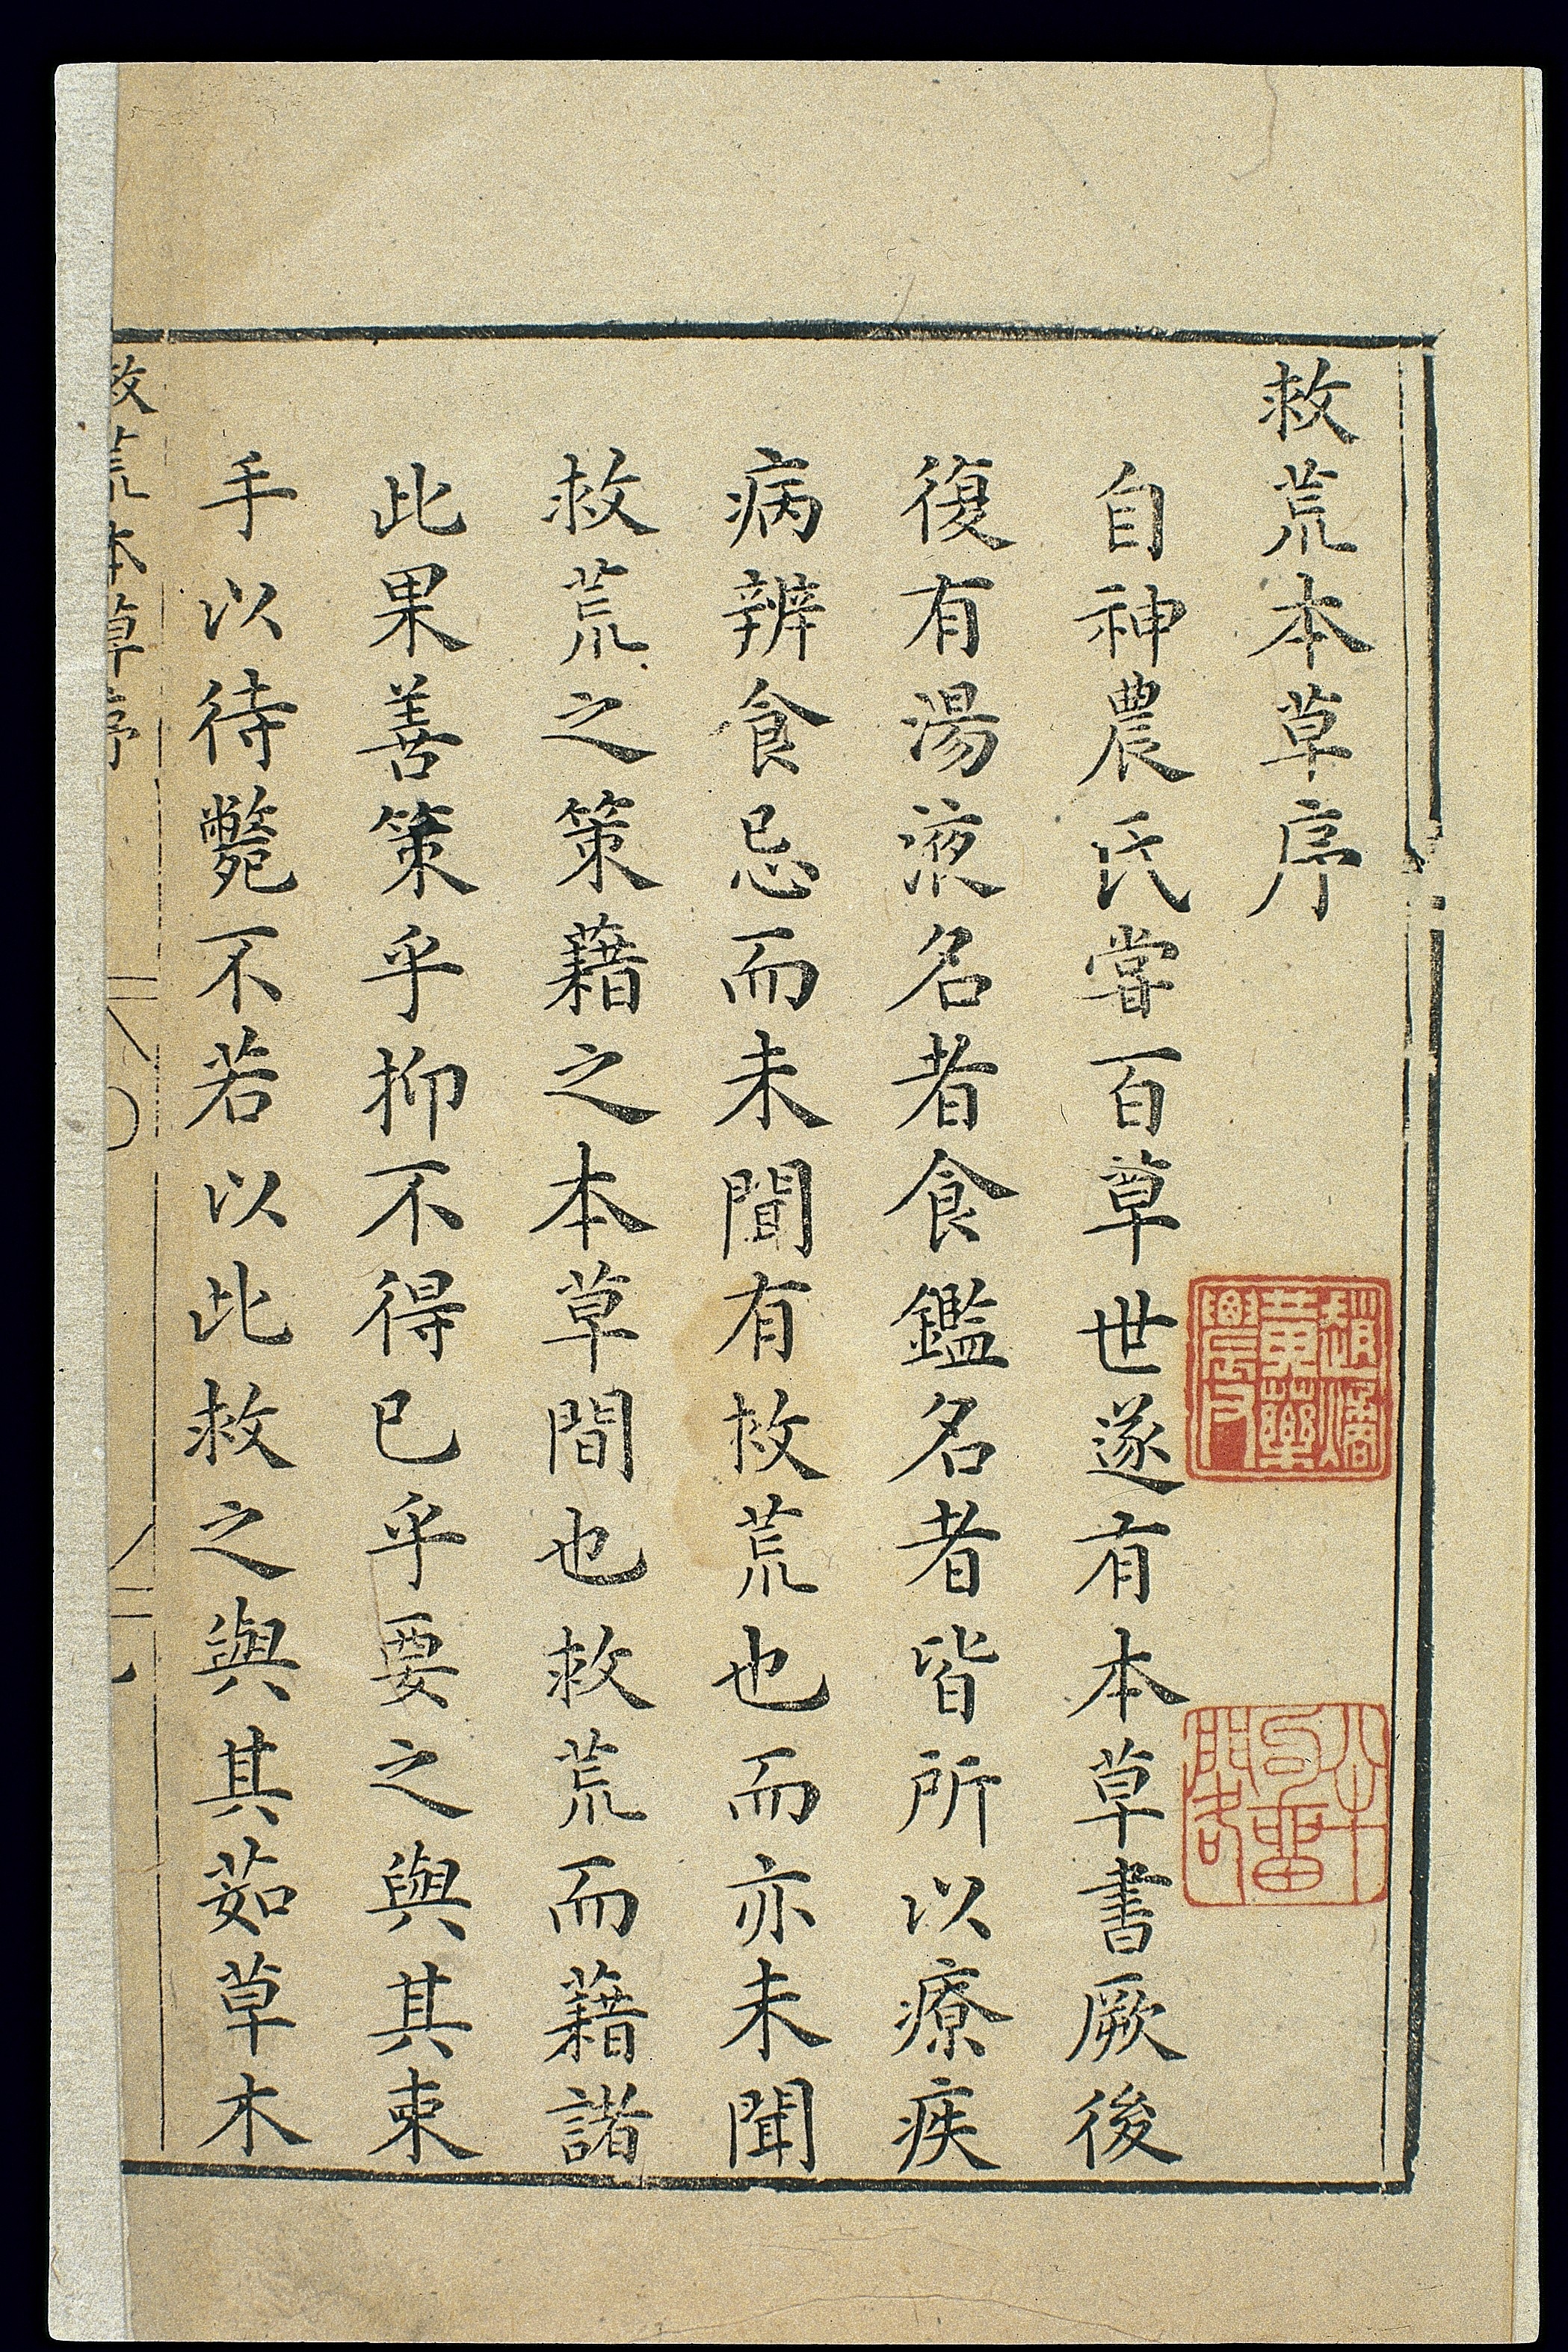 救荒本草序
自神農氏甞百草世遂有本草書厥後
復有湯液名者食鑑名者皆所以療疾
病辨食忌而未聞有救荒也而亦未聞
救荒之策藉之本草間也救荒而藉諸
此果善策乎抑不得已乎要之與其束
手以待斃不若以此救之與其茹草木
救荒本草序